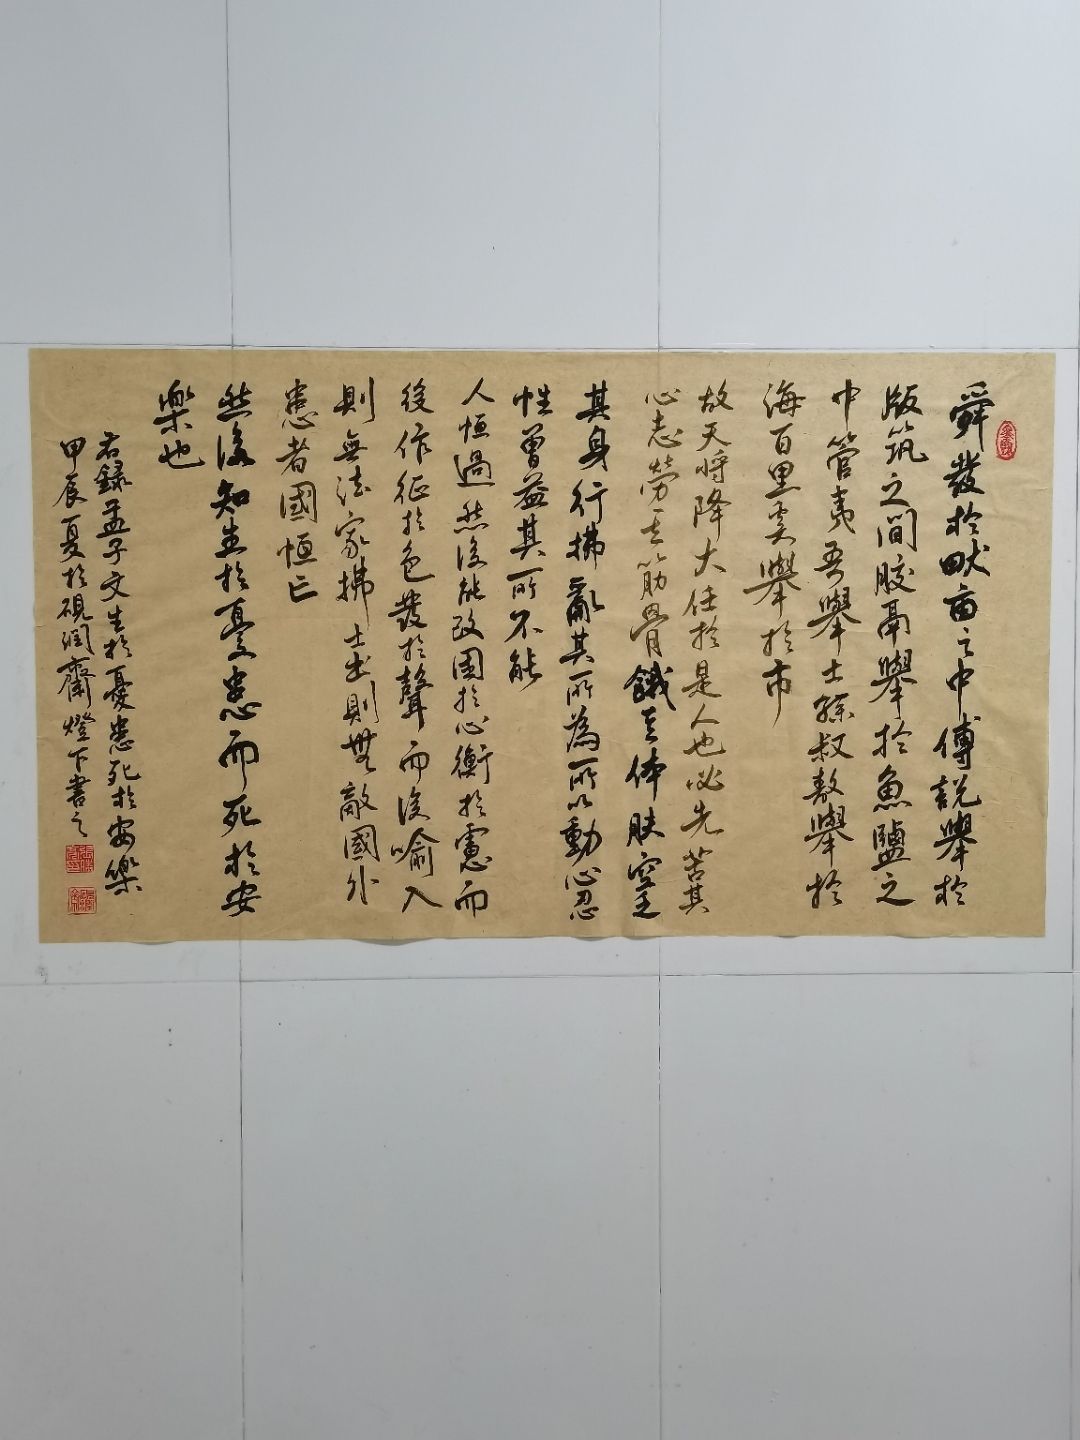 舜發於畎亩之中傅説舉於
版筑之間膠鬲舉於魚鹽之
中管夷吾舉士孫叔敖舉於
海百里奚舉於市
故天将降大任於是人也必先苦其
心志勞其筋骨餓其体膚空乏
其身行拂亂其所為所以動心忍
性曾益其所不能
人恒過然後能改困於心衡於慮而
後作征於色發於聲而後喻入
則無法家拂士出則無敵國外
患者國恒亡
然後知生於憂患而死於安
樂也
右録孟子文生於憂患死於安樂
甲辰夏於硯润齋燈下書之